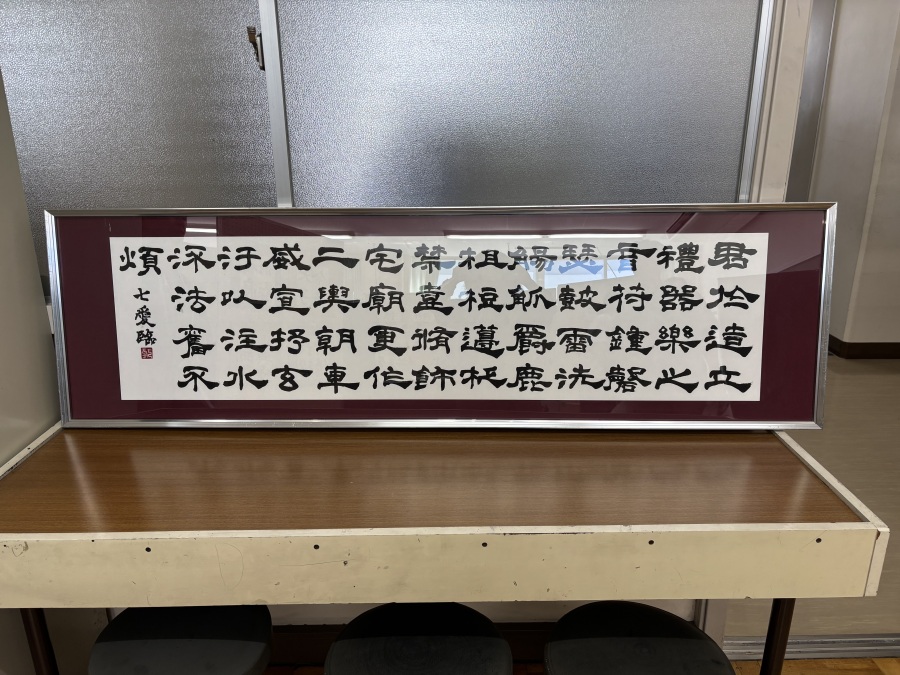 君於造立
禮器樂之
音符鍾磬
瑟鼓雷洗
觴觚爵鹿
柤梪籩柉
禁壺脩飾
宅廟更作
二輿朝車
威宣抒玄
汙以注水
深法舊不
煩
七愛臨